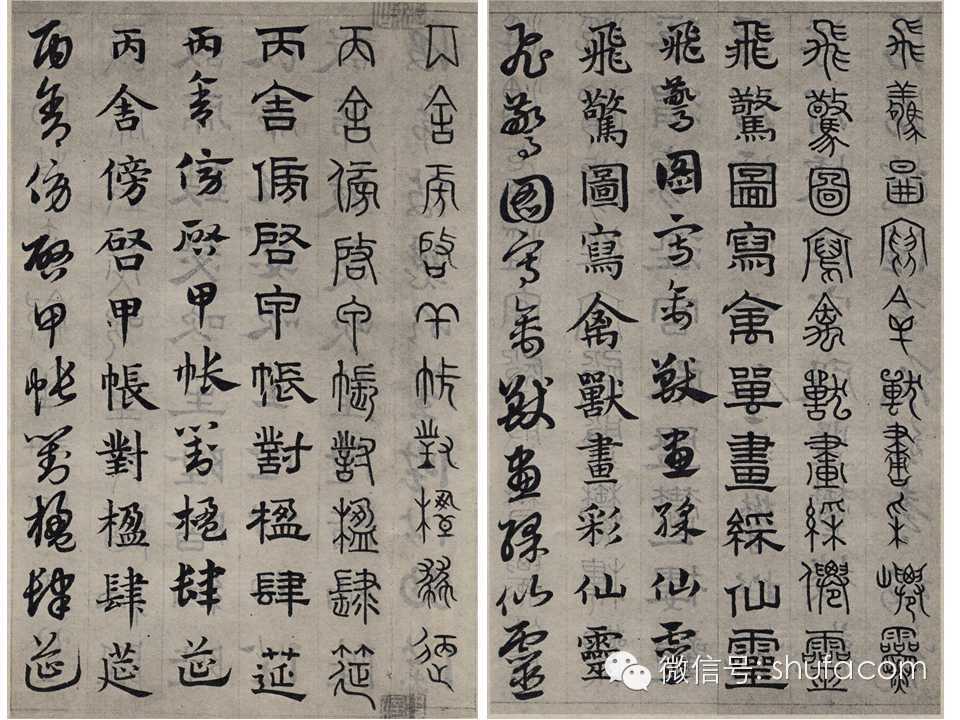 飛驚圖寫禽獸畫采仙靈
飛驚圖寫禽獸畫綵仙靈
飛驚圖寫禽獸畫綵仙靈
飛驚圖寫禽獸畫綵仙靈
飛驚圖寫禽獸畫彩仙靈
飛驚圖寫禽獸畫綵仙靈
丙舍傍啓甲帳對楹肆筵
丙舍傍啓甲帳對楹肆筵
丙舍傍啓甲帳對楹肆莚
丙舍傍啓甲帳對楹肆莚
丙舍傍啓甲帳對楹肆莚
丙舍傍啓甲帳對楹肆莚
微信号: shufacom